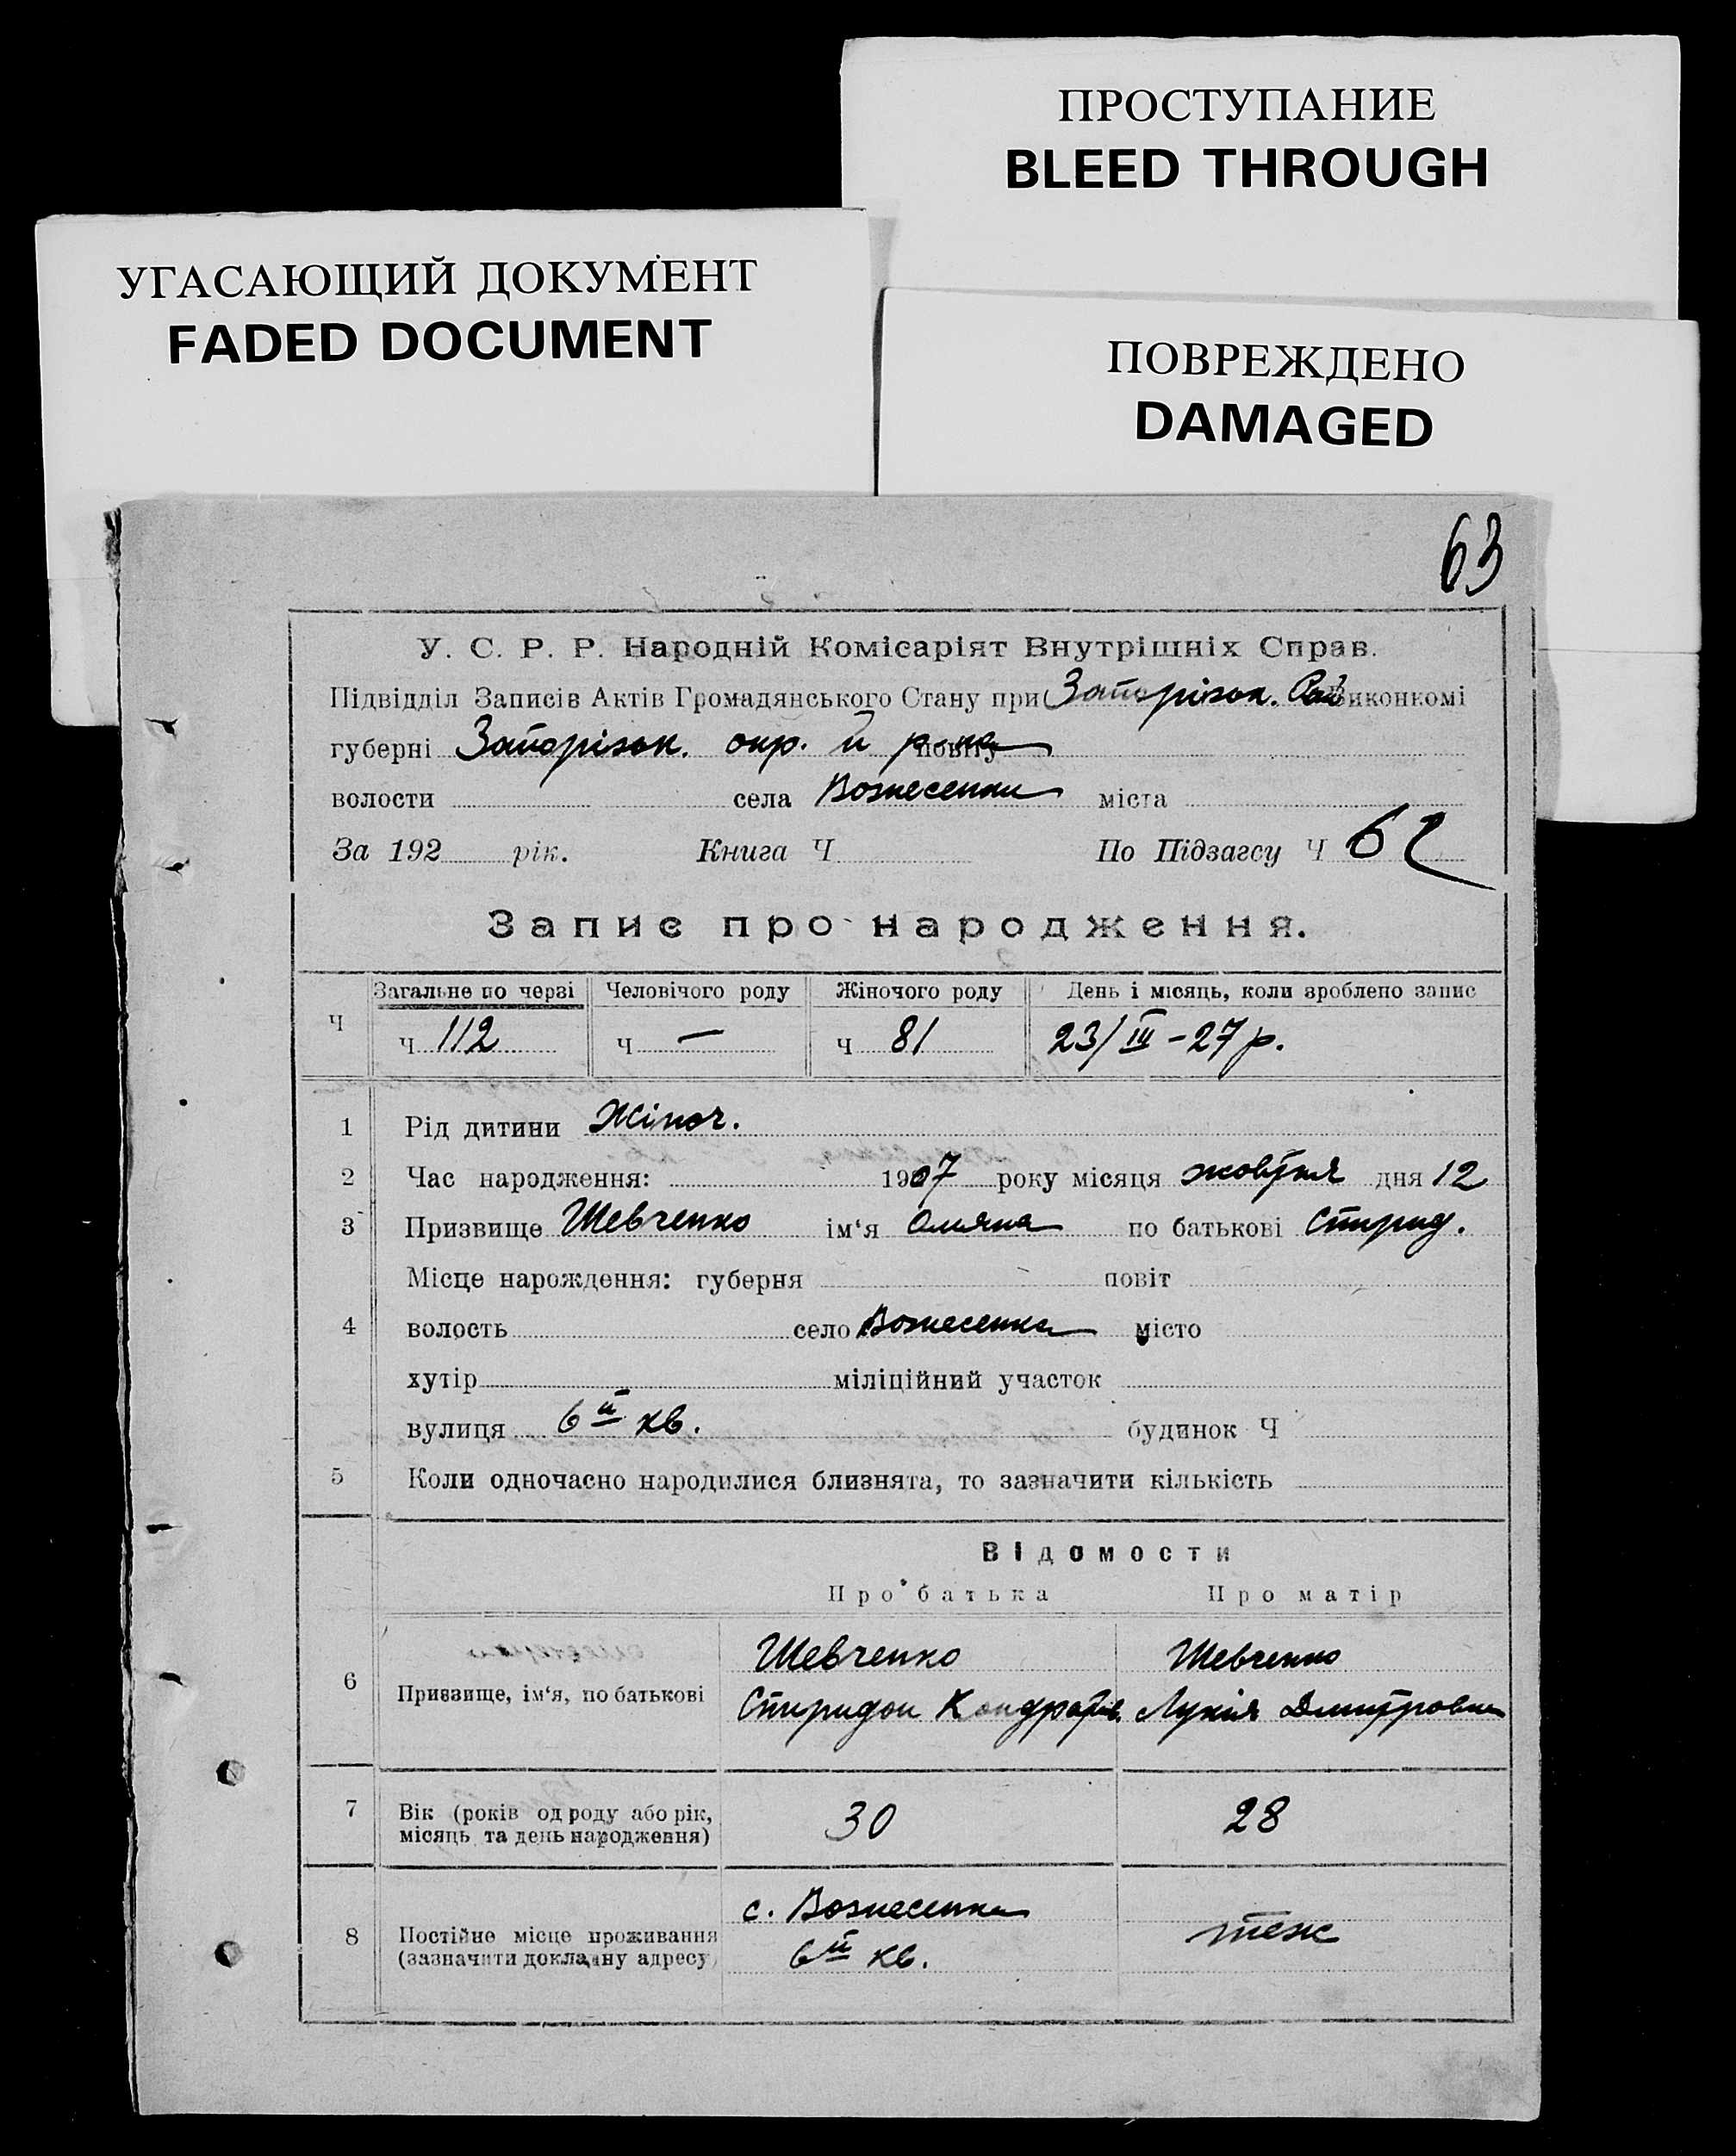 ПРОСТУПАНИЕ
BLEED THROUGH
УГАСАЮЩИЙ ДОКУМЕНТ
FADED DOCUMENT
ПОВРЕЖДЕНО
DAMAGED
63
У. С. Р. Р. Народній Комісаріят Внутрішніх Справ.
Підвідділ Записів Актів Громадянського Стану при Запорізьк. Рай виконкомі
губерні Запорізьк. окр. й р-на повіту
волости села Вознесенки міста
За 192 рік. Книга Ч По Підзагсу Ч 62
Запис про народження.
Ч Загальне по черзі Человічого роду Жіночого роду День і місяць, коли зроблено запис
Ч 112 Ч — Ч 81 23/III-27 р.
1 Рід дитини Жіноч.
2 Час народження: 1907 року місяця жовтня дня 12
3 Призвище Шевченко ім'я Оляна по батькові Спирид.
Місце нарождення: губерня повіт
4 волость село Вознесенка місто
хутір міліційний участок
вулиця 6й кв. будинок Ч
5 Коли одночасно народилися близнята, то зазначити кількість
Відомости
Про батька Про матір
Шевченко Шевченко
6 Призвище, ім'я, по батькові Спиридон Кондратів. Лукія Дмитровна
7 Вік (років од роду або рік, місяць та день народження) 30 28
с. Вознесенка
8 Постійне місце проживання (зазначити докладну адресу) 6й кв. теж